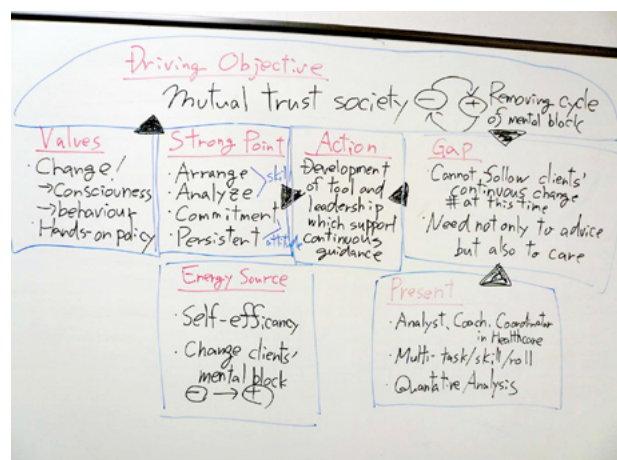 Driving Objective
Mutual trust society - + Removing cycle
of mental block
Values
· Change!
→Consciouness
→behaviour
· Hands-on policy
Strong Point
· Arrange
· Analyze
skill
· Commitment
· Persistent
attitude
Action
Development
of tool and
leadership
which support
continuous
guidance
Gap
· Cannot follow clients'
continuous change
# at this time
· Need not only to advice
but also to care
Energy Source
· Self-efficancy
· Change clients'
mental block
- → +
Present
· Analyst, Coach, Coordinator
in Healthcare
· Multi-task/skill/roll
· Quantative Analysis